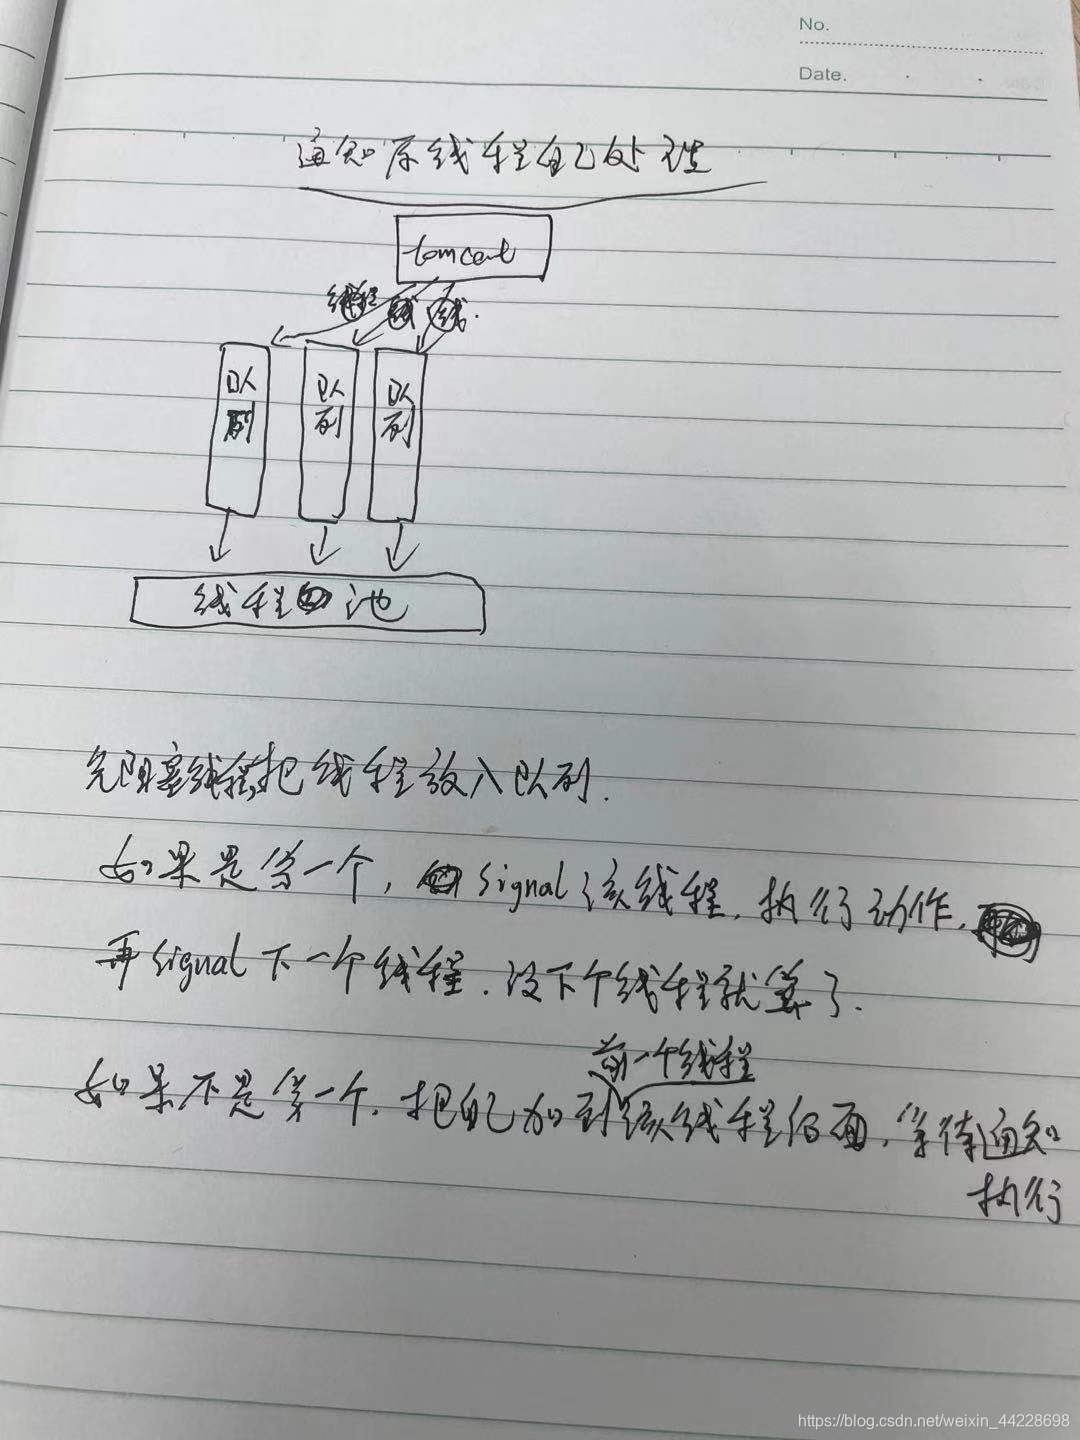 No.
Date.
通知原线程自己处理
tomcat
线程 线 线.
队列 队列 队列
线程池
先阻塞线程,把线程放入队列.
如果是第一个, signal该线程, 执行动作.
再signal下一个线程. 没下个线程就算了.
前一个线程
如果不是第一个. 把自己加到该线程后面, 等待通知
执行
https://blog.csdn.net/weixin_44228698